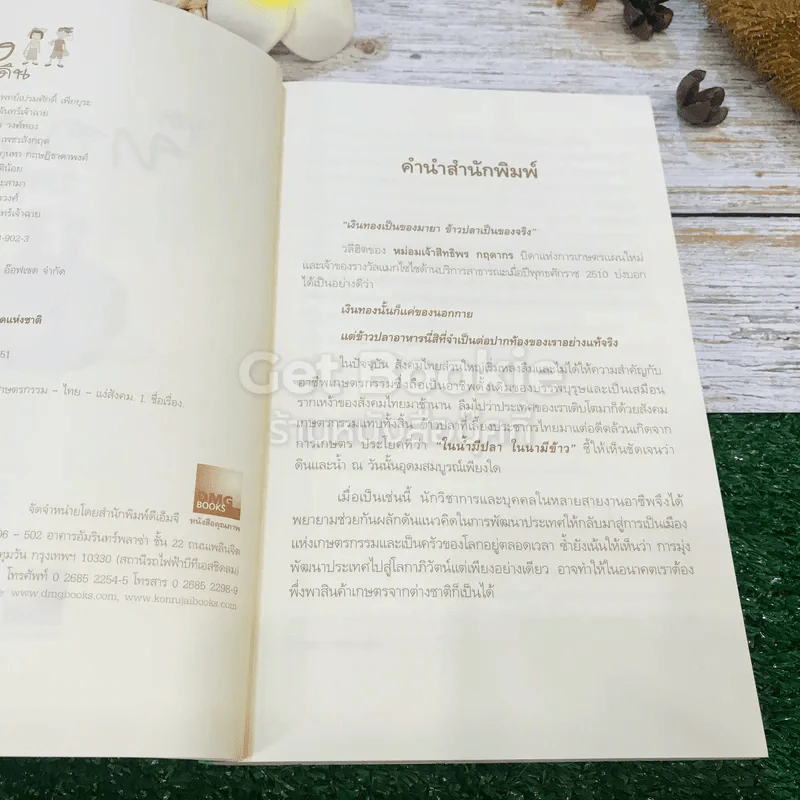 ดิน
พทย์เปรมศักดิ์ เพียยุระ
จันทร์เจ้าฉาย
วงศ์ทอง
เพชรสังกฤต
กุนทา กฤษฎิธาดาพงศ์
ดีน้อย
ะสามา
รวงศ์
ทร์เจ้าฉาย
-902-3
อ๊อฟเซต จำกัด
ดแห่งชาติ
51
กษตรกรรม – ไทย – แง่สังคม. 1. ชื่อเรื่อง.
DMG
BOOKS
หนังสือคุณภาพ
จัดจำหน่ายโดยสำนักพิมพ์ดีเอ็มจี
96 - 502 อาคารอัมรินทร์พลาซ่า ชั้น 22 ถนนเพลินจิต
ทุมวัน กรุงเทพฯ 10330 (สถานีรถไฟฟ้าบีทีเอสชิดลม)
โทรศัพท์ 0 2685 2254-5 โทรสาร 0 2685 2298-9
e www.dmgbooks.com, www.konrujaibooks.com
คำนำสำนักพิมพ์
"เงินทองเป็นของมายา ข้าวปลาเป็นของจริง"
วลีฮิตของ หม่อมเจ้าสิทธิพร กฤดากร บิดาแห่งการเกษตรแผนใหม่
และเจ้าของรางวัลแมกไซไซด้านบริการสาธารณะเมื่อปีพุทธศักราช 2510 บ่งบอก
ได้เป็นอย่างดีว่า
เงินทองนั้นก็แค่ของนอกกาย
แต่ข้าวปลาอาหารนี่สิที่จำเป็นต่อปากท้องของเราอย่างแท้จริง
ในปัจจุบัน สังคมไทยส่วนใหญ่เริ่มหลงลืมและไม่ได้ให้ความสำคัญกับ
อาชีพเกษตรกรรมซึ่งถือเป็นอาชีพดั้งเดิมของบรรพบุรุษและเป็นเสมือน
รากเหง้าของสังคมไทยมาช้านาน ลืมไปว่าประเทศของเราเติบโตมาก็ด้วยสังคม
เกษตรกรรมแทบทั้งสิ้น ข้าวปลาที่เลี้ยงประชากรไทยมาแต่อดีตล้วนเกิดจาก
การเกษตร ประโยคที่ว่า "ในน้ำมีปลา ในนามีข้าว" ชี้ให้เห็นชัดเจนว่า
ดินและน้ำ ณ วันนั้นอุดมสมบูรณ์เพียงใด
เมื่อเป็นเช่นนี้ นักวิชาการและบุคคลในหลายสายงานอาชีพจึงได้
พยายามช่วยกันผลักดันแนวคิดในการพัฒนาประเทศให้กลับมาสู่การเป็นเมือง
แห่งเกษตรกรรมและเป็นครัวของโลกอยู่ตลอดเวลา ซ้ำยังเน้นให้เห็นว่า การมุ่ง
พัฒนาประเทศไปสู่โลกาภิวัตน์แต่เพียงอย่างเดียว อาจทำให้ในอนาคตเราต้อง
พึ่งพาสินค้าเกษตรจากต่างชาติก็เป็นได้
Get Bookie
ร้านหนังสือบุ๊คกี้